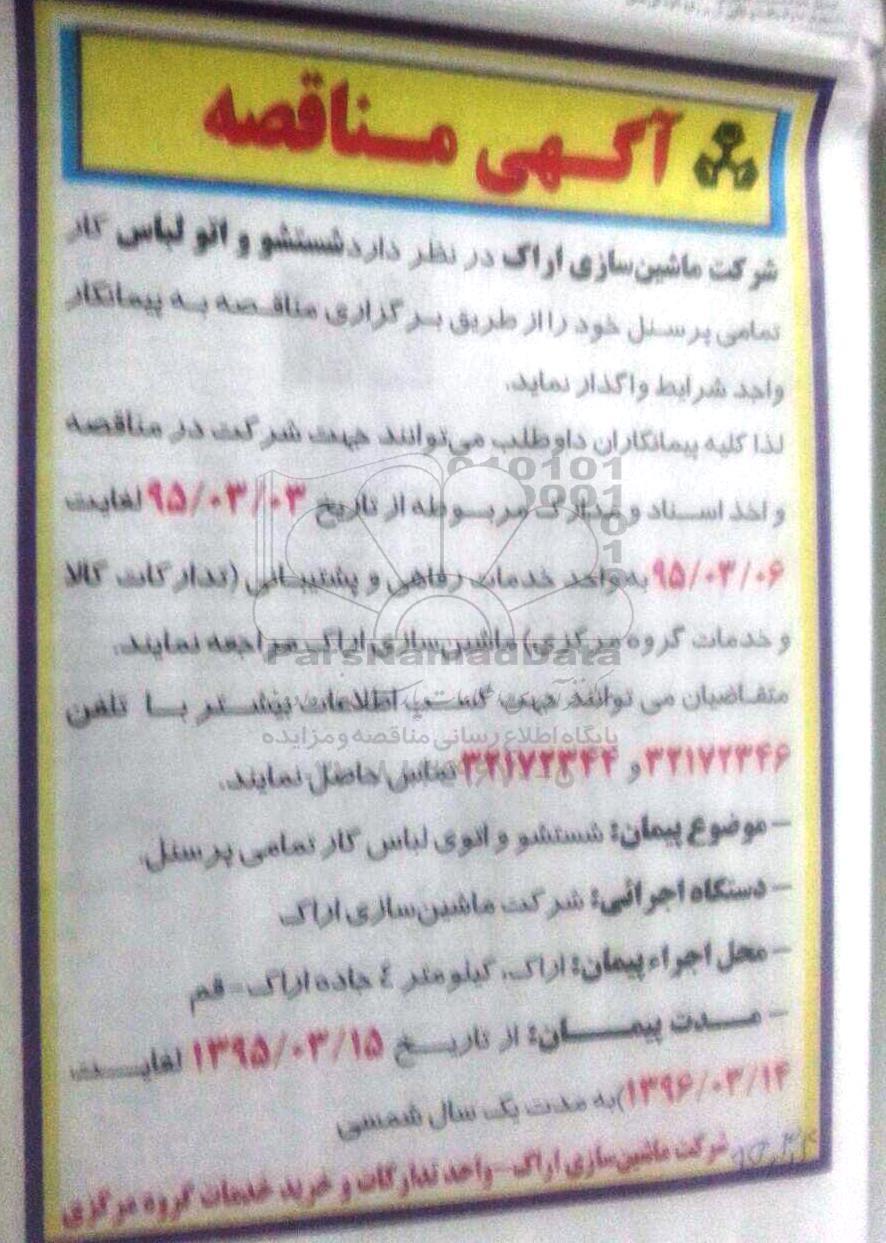 آگهی مناقصه
شرکت ماشین‌سازی اراک در نظر دارد شستشو و اتو لباس کار
تمامی پرسنل خود را از طریق برگزاری مناقصه به پیمانکار
واجد شرایط واگذار نماید.
لذا کلیه پیمانکاران داوطلب می‌توانند جهت شرکت در مناقصه
و اخذ اسناد و مدارک مربوطه از تاریخ ۹۵/۰۳/۰۳ لغایت
۹۵/۰۳/۰۶ به واحد خدمات رفاهی و پشتیبانی (تدارکات کالا
و خدمات گروه مرکزی) ماشین‌سازی اراک مراجعه نمایند.
متقاضیان می توانند جهت کسب اطلاعات بیشتر با تلفن
۳۲۱۷۲۳۴۶ و ۳۲۱۷۲۳۴۴ تماس حاصل نمایند.
– موضوع پیمان: شستشو و اتوی لباس کار تمامی پرسنل.
– دستگاه اجرائی: شرکت ماشین‌سازی اراک
– محل اجراء پیمان: اراک، کیلومتر ٤ جاده اراک – قم
– مدت پیمان: از تاریخ ۱۳۹۵/۰۳/۱۵ لغایت
۱۳۹۶/۰۳/۱۴) به مدت یک سال شمسی
شرکت ماشین‌سازی اراک – واحد تدارکات و خرید خدمات گروه مرکزی
010101
0001
0
1
ParsNamadData
پایگاه اطلاع رسانی مناقصه و مزایده